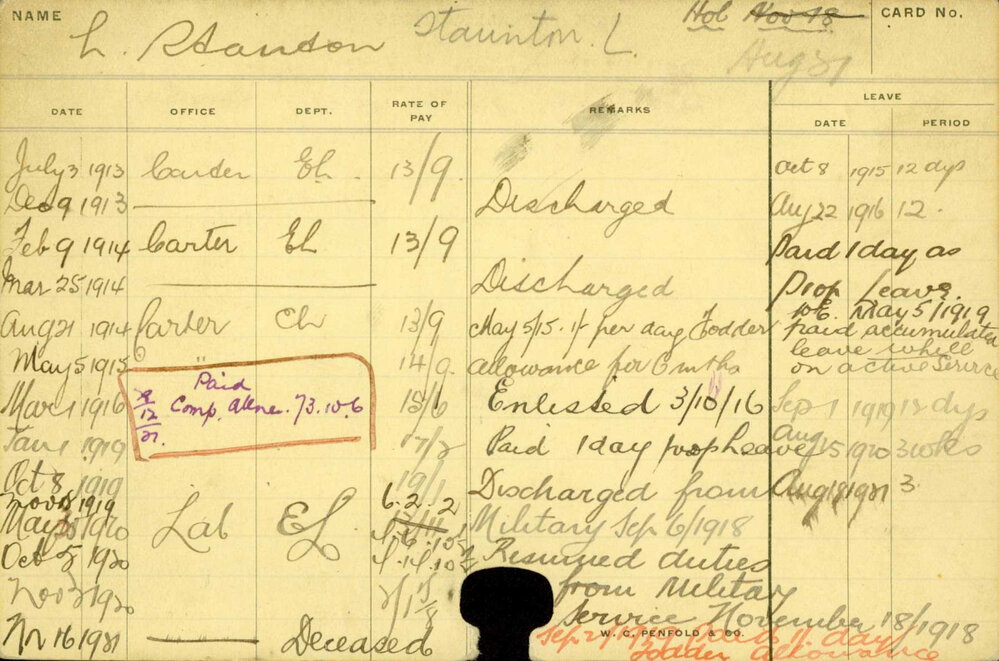 NAME L. Stanton Staunton. L. Hol Nov 18 CARD No.
Aug 31
LEAVE
DATE OFFICE DEPT. RATE OF PAY REMARKS DATE PERIOD
July 3 1913 Carter EL 13/9 Oct 8 1915 12 dys
Dec 9 1913 Discharged Aug 22 1916 12.
Feb 9 1914 Carter EL 13/9 Paid 1 day as
Mar 25 1914 Discharged Prop leave.
Aug 21 1914 Carter EL 13/9 May 5/15. 1/- per day Fodder W.E. May 5/1919
paid accumulated
May 5 1915 " 14/9 allowance for 6 mths leave whilst
on active Service
Paid
Mar 1 1916 Comp. Allne. 73.10.6 15/6 Enlisted 3/10/16 Sep 1 1919 18 dys
12/21.
Jan 1 1919 17/2 Paid 1 day prop leave Aug 15 1920 3 wks
Oct 8 1919 19/1 Discharged from Aug 18 1921 3
Nov 8 1919 6.2.2
May 1920 Lab EL Military Sep 6/1918
Oct 5 1920 Resumed duties
Nov 1920 from Military
service November 18/1918
Nr 16 1921 Deceased
W. C. PENFOLD & CO.
Sep 1/- day
Fodder allowance